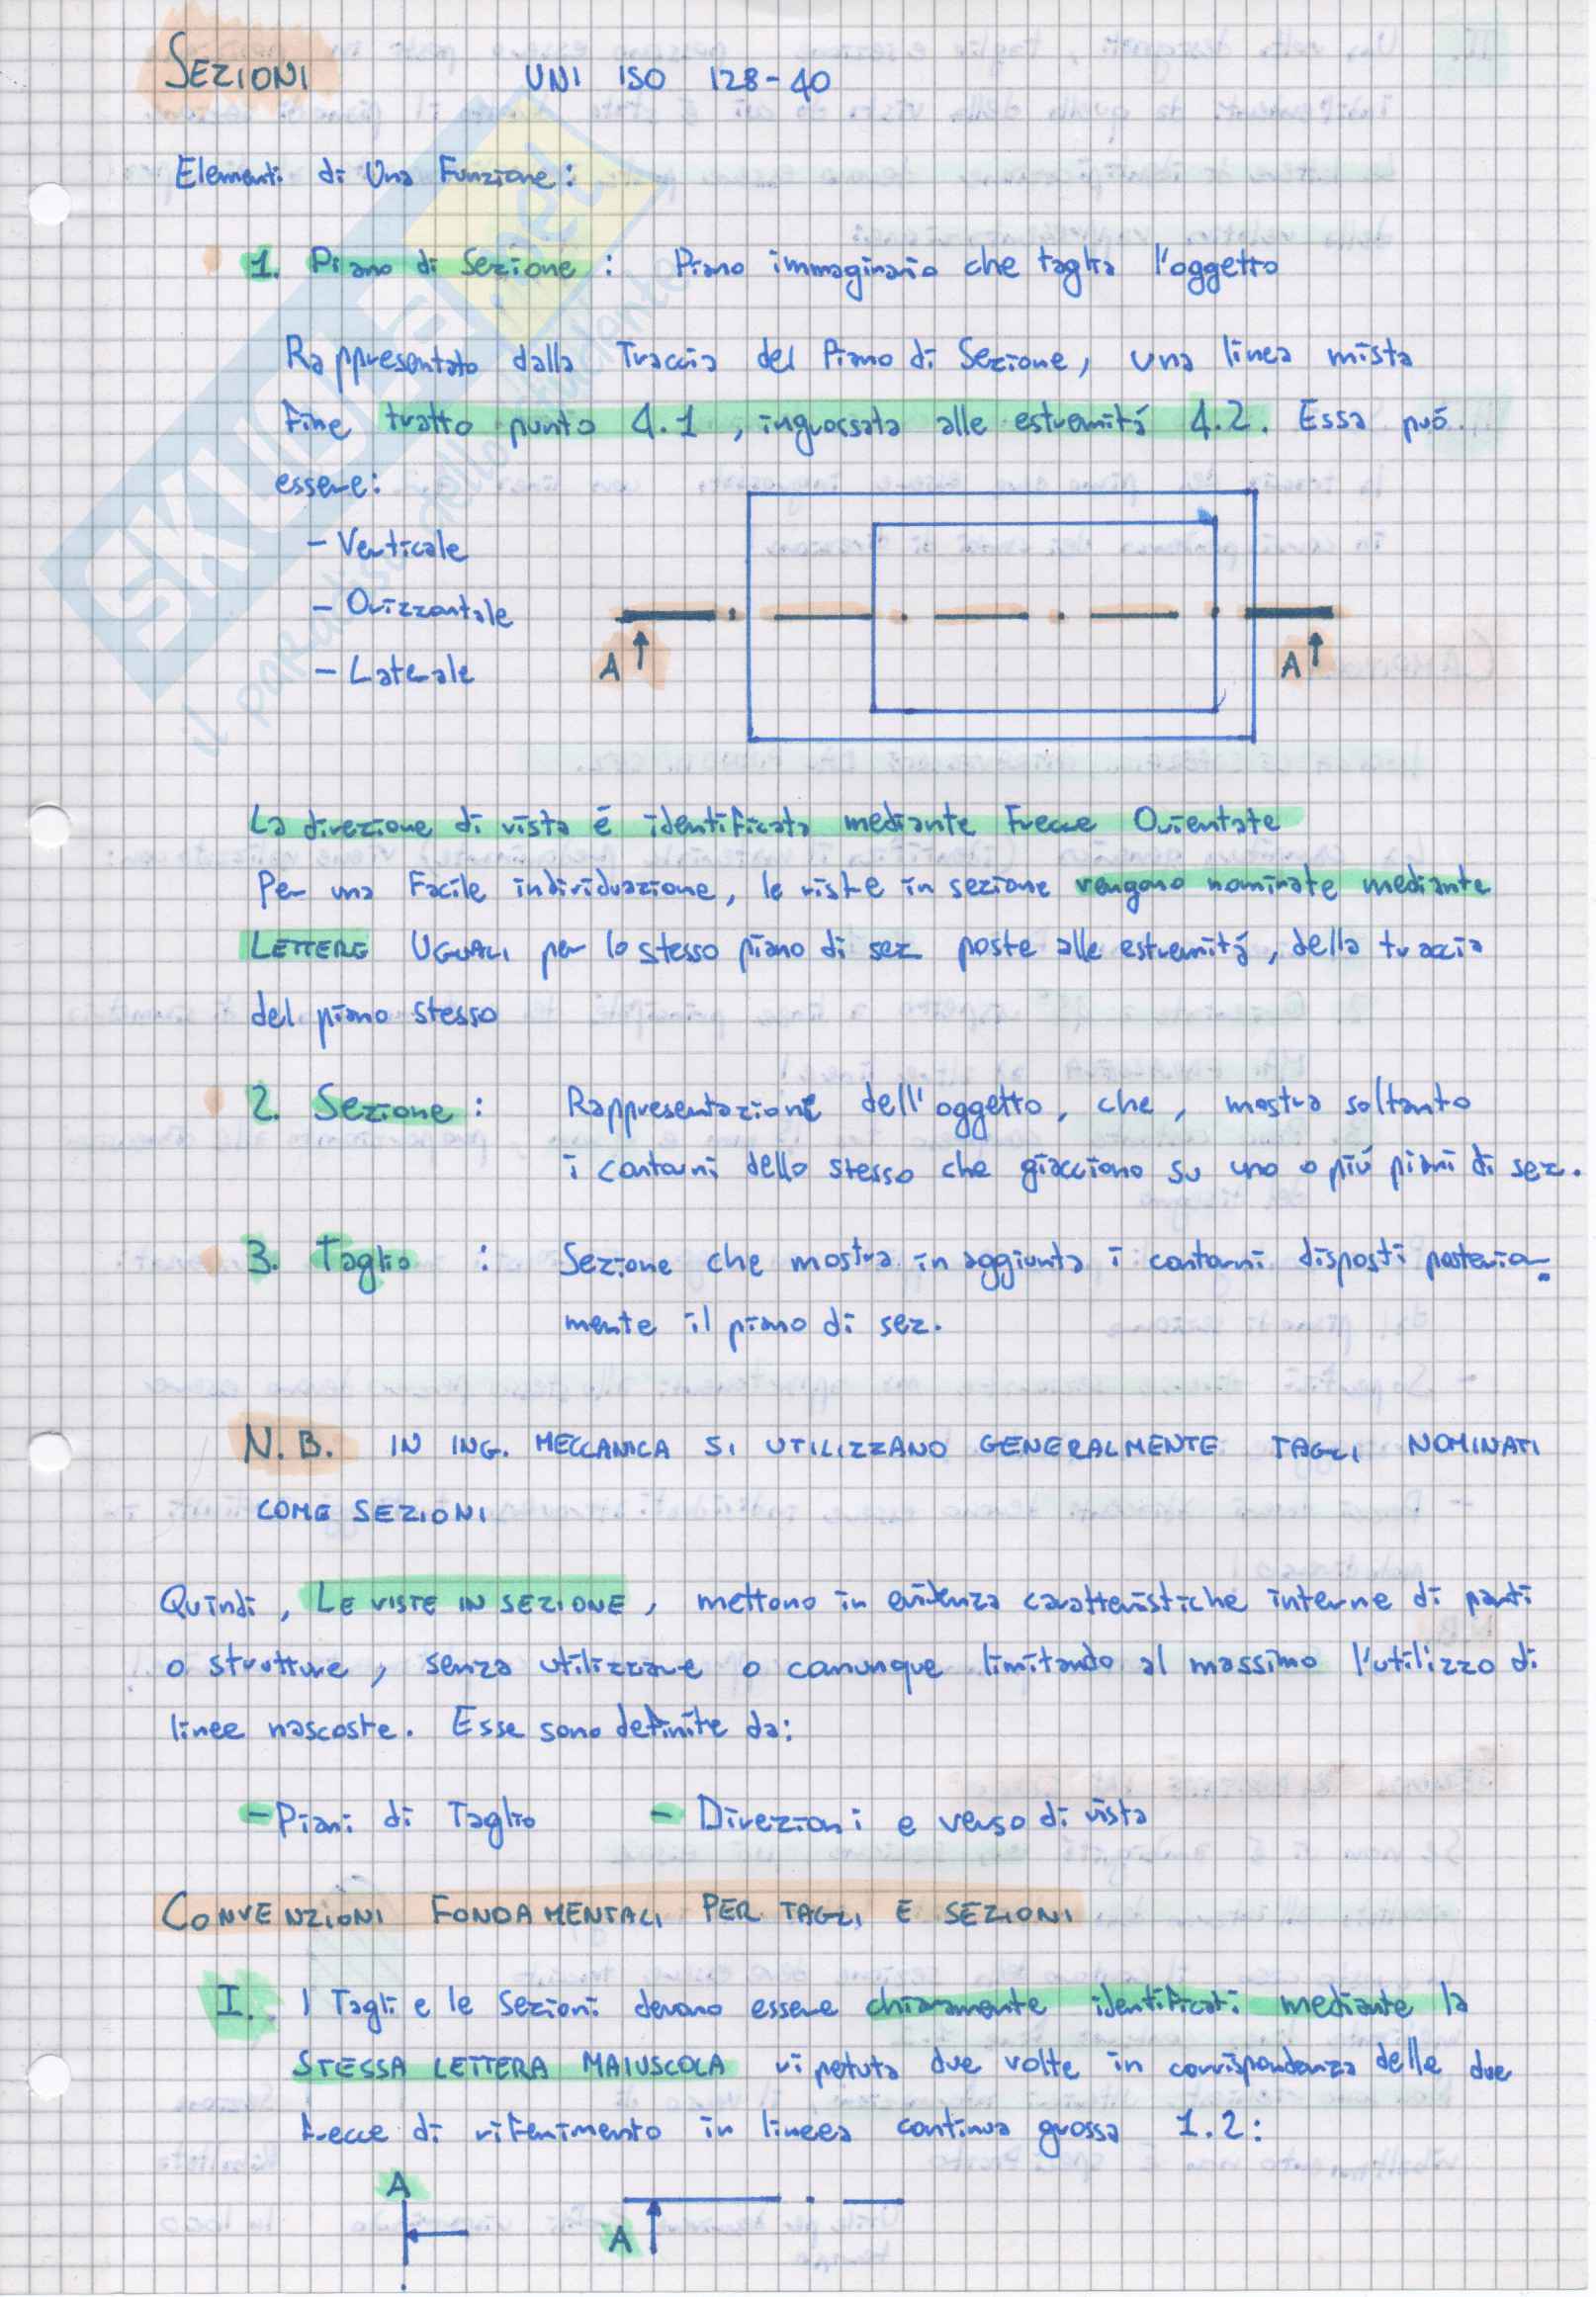 SEZIONI UNI ISO 128-40
Elementi di Una Funzione:
1. Piano di Sezione : Piano immaginario che taglia l'oggetto
Rappresentato dalla Traccia del Piano di Sezione, una linea mista
fine tratto punto 4.1, ingrossata alle estremitá 4.2. Essa puó
essere:
- Verticale
- Orizzontale
- Laterale
A A
La direzione di vista é identificata mediante Frecce Orientate
Per una Facile individuazione, le viste in sezione vengono nominate mediante
LETTERE UGUALI per lo stesso piano di sez poste alle estremitá, della traccia
del piano stesso
2. Sezione : Rappresentazione dell'oggetto, che, mostra soltanto
i contorni dello stesso che giacciono su uno o piú piani di sez.
3. Taglio : Sezione che mostra in aggiunta i contorni disposti posterior-
mente il piano di sez.
N.B. IN ING. MECCANICA SI UTILIZZANO GENERALMENTE TAGLI NOMINATI
COME SEZIONI
Quindi, LE VISTE IN SEZIONE, mettono in evidenza caratteristiche interne di parti
o strutture, senza utilizzare o comunque limitando al massimo l'utilizzo di
linee nascoste. Esse sono definite da:
- Piani di Taglio - Direzioni e verso di vista
CONVENZIONI FONDAMENTALI PER TAGLI E SEZIONI
I. I Tagli e le Sezioni devono essere chiaramente identificati mediante la
STESSA LETTERA MAIUSCOLA ripetuta due volte in corrispondenza delle due
frecce di riferimento in lineea continua grossa 1.2:
A
A
SKUOLA.net
il paradiso dello studente